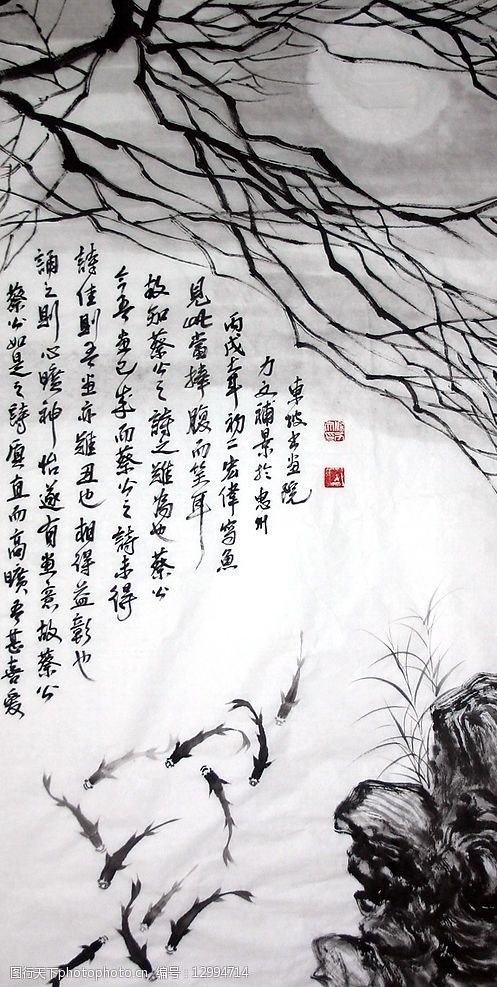 蔡公如是之詩質直而高曠吾甚喜愛
誦之則心曠神怡遂有畫意故蔡公
詩佳則吾畫亦雖丑也相得益彰也
今吾畫已成而蔡公之詩未得
故知蔡公之詩之難為也蔡公
見此當捧腹而笑耳
丙戌大年初二宏偉寫魚
力文補景於惠州
東坡書畫院
图行天下 photophoto.cn 编号：12994714